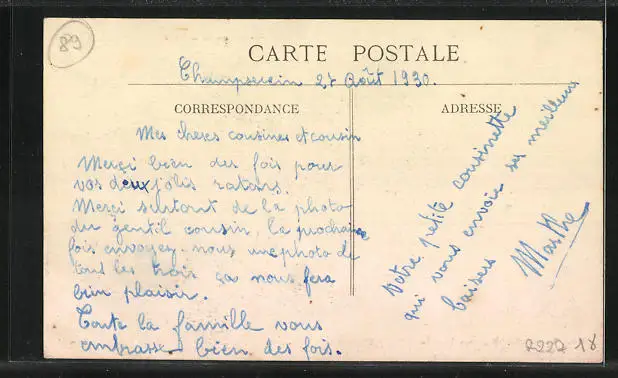 89
CARTE POSTALE
Champsevein 27 Août 1930.
CORRESPONDANCE
ADRESSE
Mes cheres cousines et cousin
Merçi bien des fois pour
vos deux jolis
Merçi surtout de la photo
du gentil cousin, la prochaine
fois envoyez-nous une photo de
tous les trois ça nous fera
bien plaisir.
Toute la famille vous
embrasse bien des fois.
Votre petite cousinette
qui vous envoie ses meilleurs
baisers
Marthe
2227 18